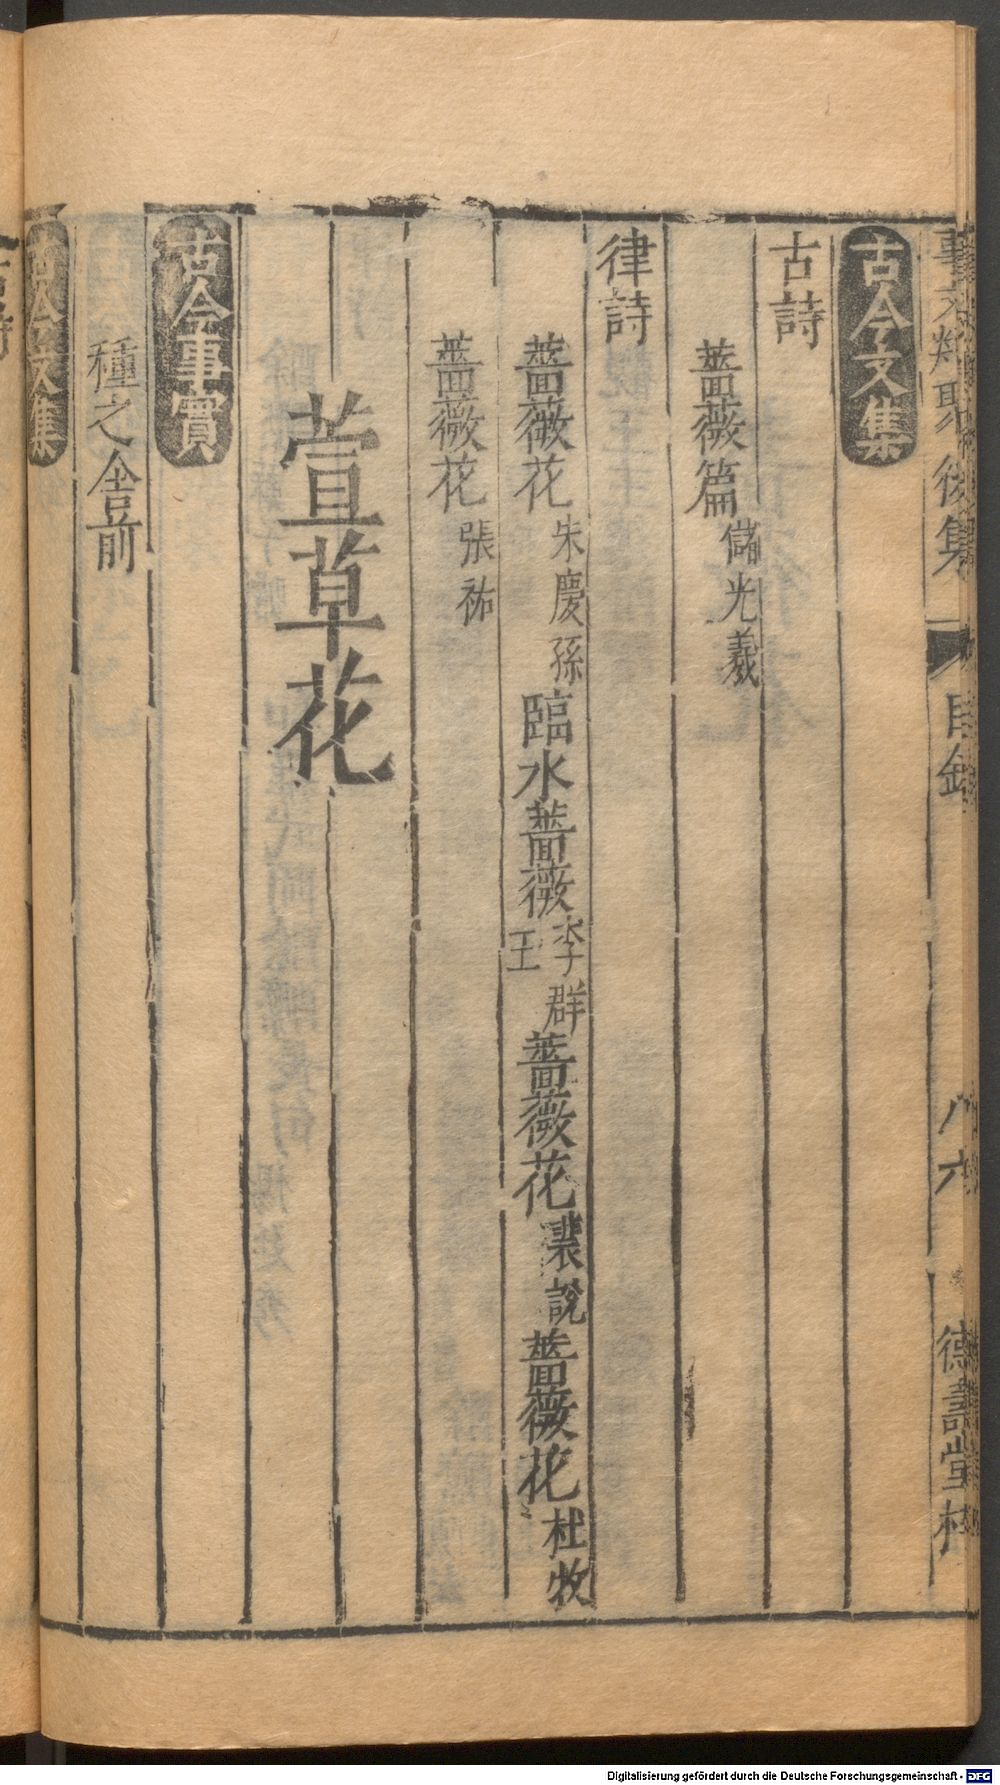 事文類聚後集 目錄 八六 德壽堂梓
古今文集
古詩
薔薇篇 儲光羲
律詩
薔薇花 朱慶孫 臨水薔薇 李群王 薔薇花 裴說 薔薇花 杜牧
薔薇花 張祐
萱草花
古今事實
種之舍前
古今文集
古詩
Digitalisierung gefördert durch die Deutsche Forschungsgemeinschaft - DFG